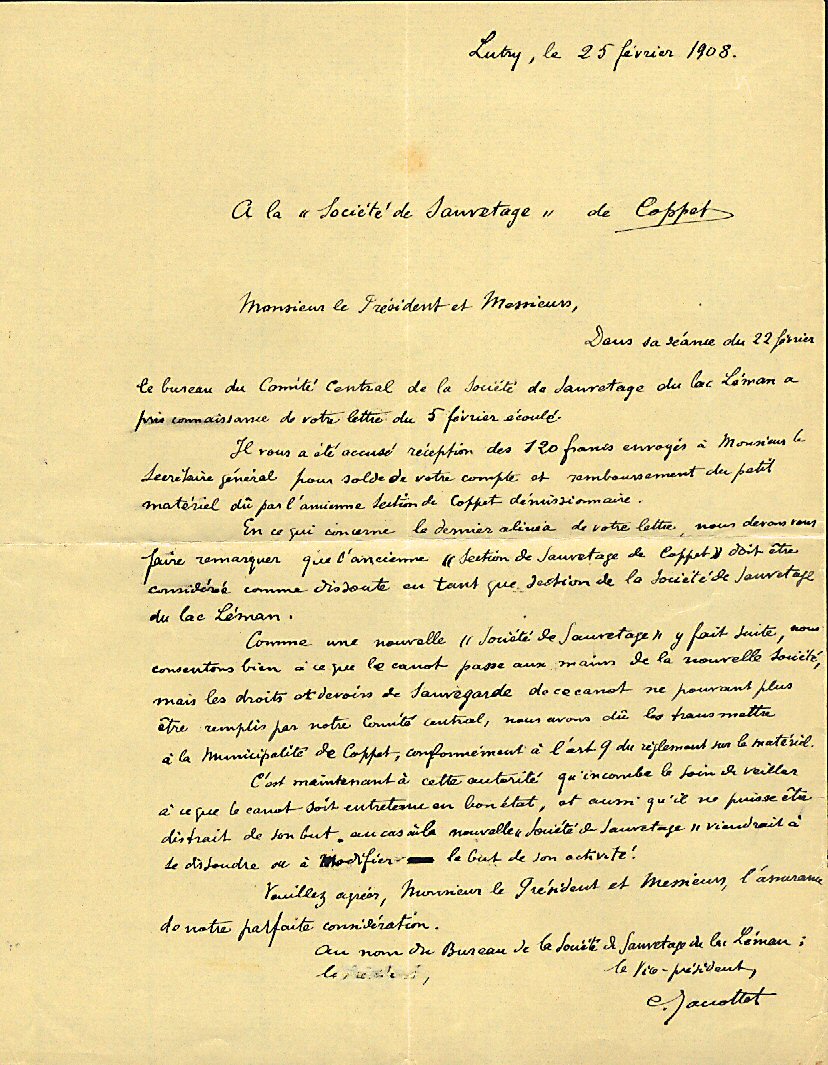 Lutry, le 25 février 1908.
A la « Société de Sauvetage » de Coppet
Monsieur le Président et Messieurs,
Dans sa séance du 22 février
le bureau du Comité Central de la Société de Sauvetage du lac Léman a
pris connaissance de votre lettre du 5 février écoulé.
Il vous a été accusé réception des 120 francs envoyés à Monsieur le
Secrétaire général pour solde de votre compte et remboursement du petit
matériel dû par l'ancienne Section de Coppet démissionnaire.
En ce qui concerne le dernier alinéa de votre lettre, nous devons vous
faire remarquer que l'ancienne « Section de Sauvetage de Coppet » doit être
considérée comme dissoute en tant que section de la Société de Sauvetage
du lac Léman.
Comme une nouvelle « Société de Sauvetage » y fait suite, nous
consentons bien à ce que le canot passe aux mains de la nouvelle Société,
mais les droits et devoirs de Sauvegarde de ce canot ne pouvant plus
être remplis par notre Comité central, nous avons dû les transmettre
à la Municipalité de Coppet, conformément à l'art 9 du règlement sur le matériel.
C'est maintenant à cette autorité qu'incombe le soin de veiller
à ce que le canot soit entretenu en bon état, et aussi qu'il ne puisse être
distrait de son but, au cas où la nouvelle « Société de Sauvetage » viendrait à
se dissoudre ou à modifier le but de son activité.
Veuillez agréer, Monsieur le Président et Messieurs, l'assurance
de notre parfaite considération.
Au nom du Bureau de la Société de Sauvetage du lac Léman :
le , le Vice-président,